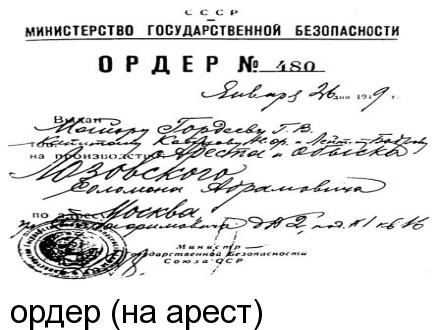 СССР
МИНИСТЕРСТВО ГОСУДАРСТВЕННОЙ БЕЗОПАСНОСТИ
ОРДЕР № 480
Января 26 дня 1949 г.
Выдан
Майору Гордееву Г.В.
на производство: Ареста и Обыска
Лозовского
Соломона Абрамовича
по адресу Москва
Министр
Государственной Безопасности
Союза ССР
ордер (на арест)